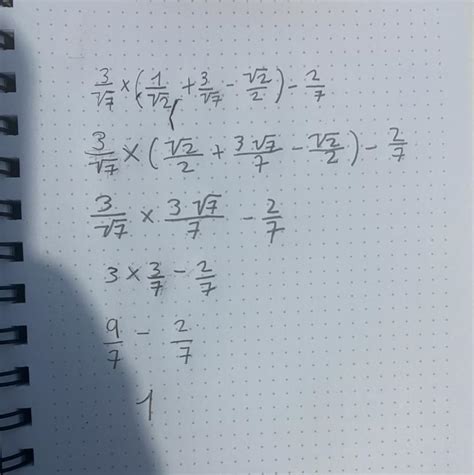 3/√7 × (1/√2 + 3/√7 − √2/2) − 2/7
3/√7 × (√2/2 + 3√7/7 − √2/2) − 2/7
3/√7 × 3√7/7 − 2/7
3 × 3/7 − 2/7
9/7 − 2/7
1